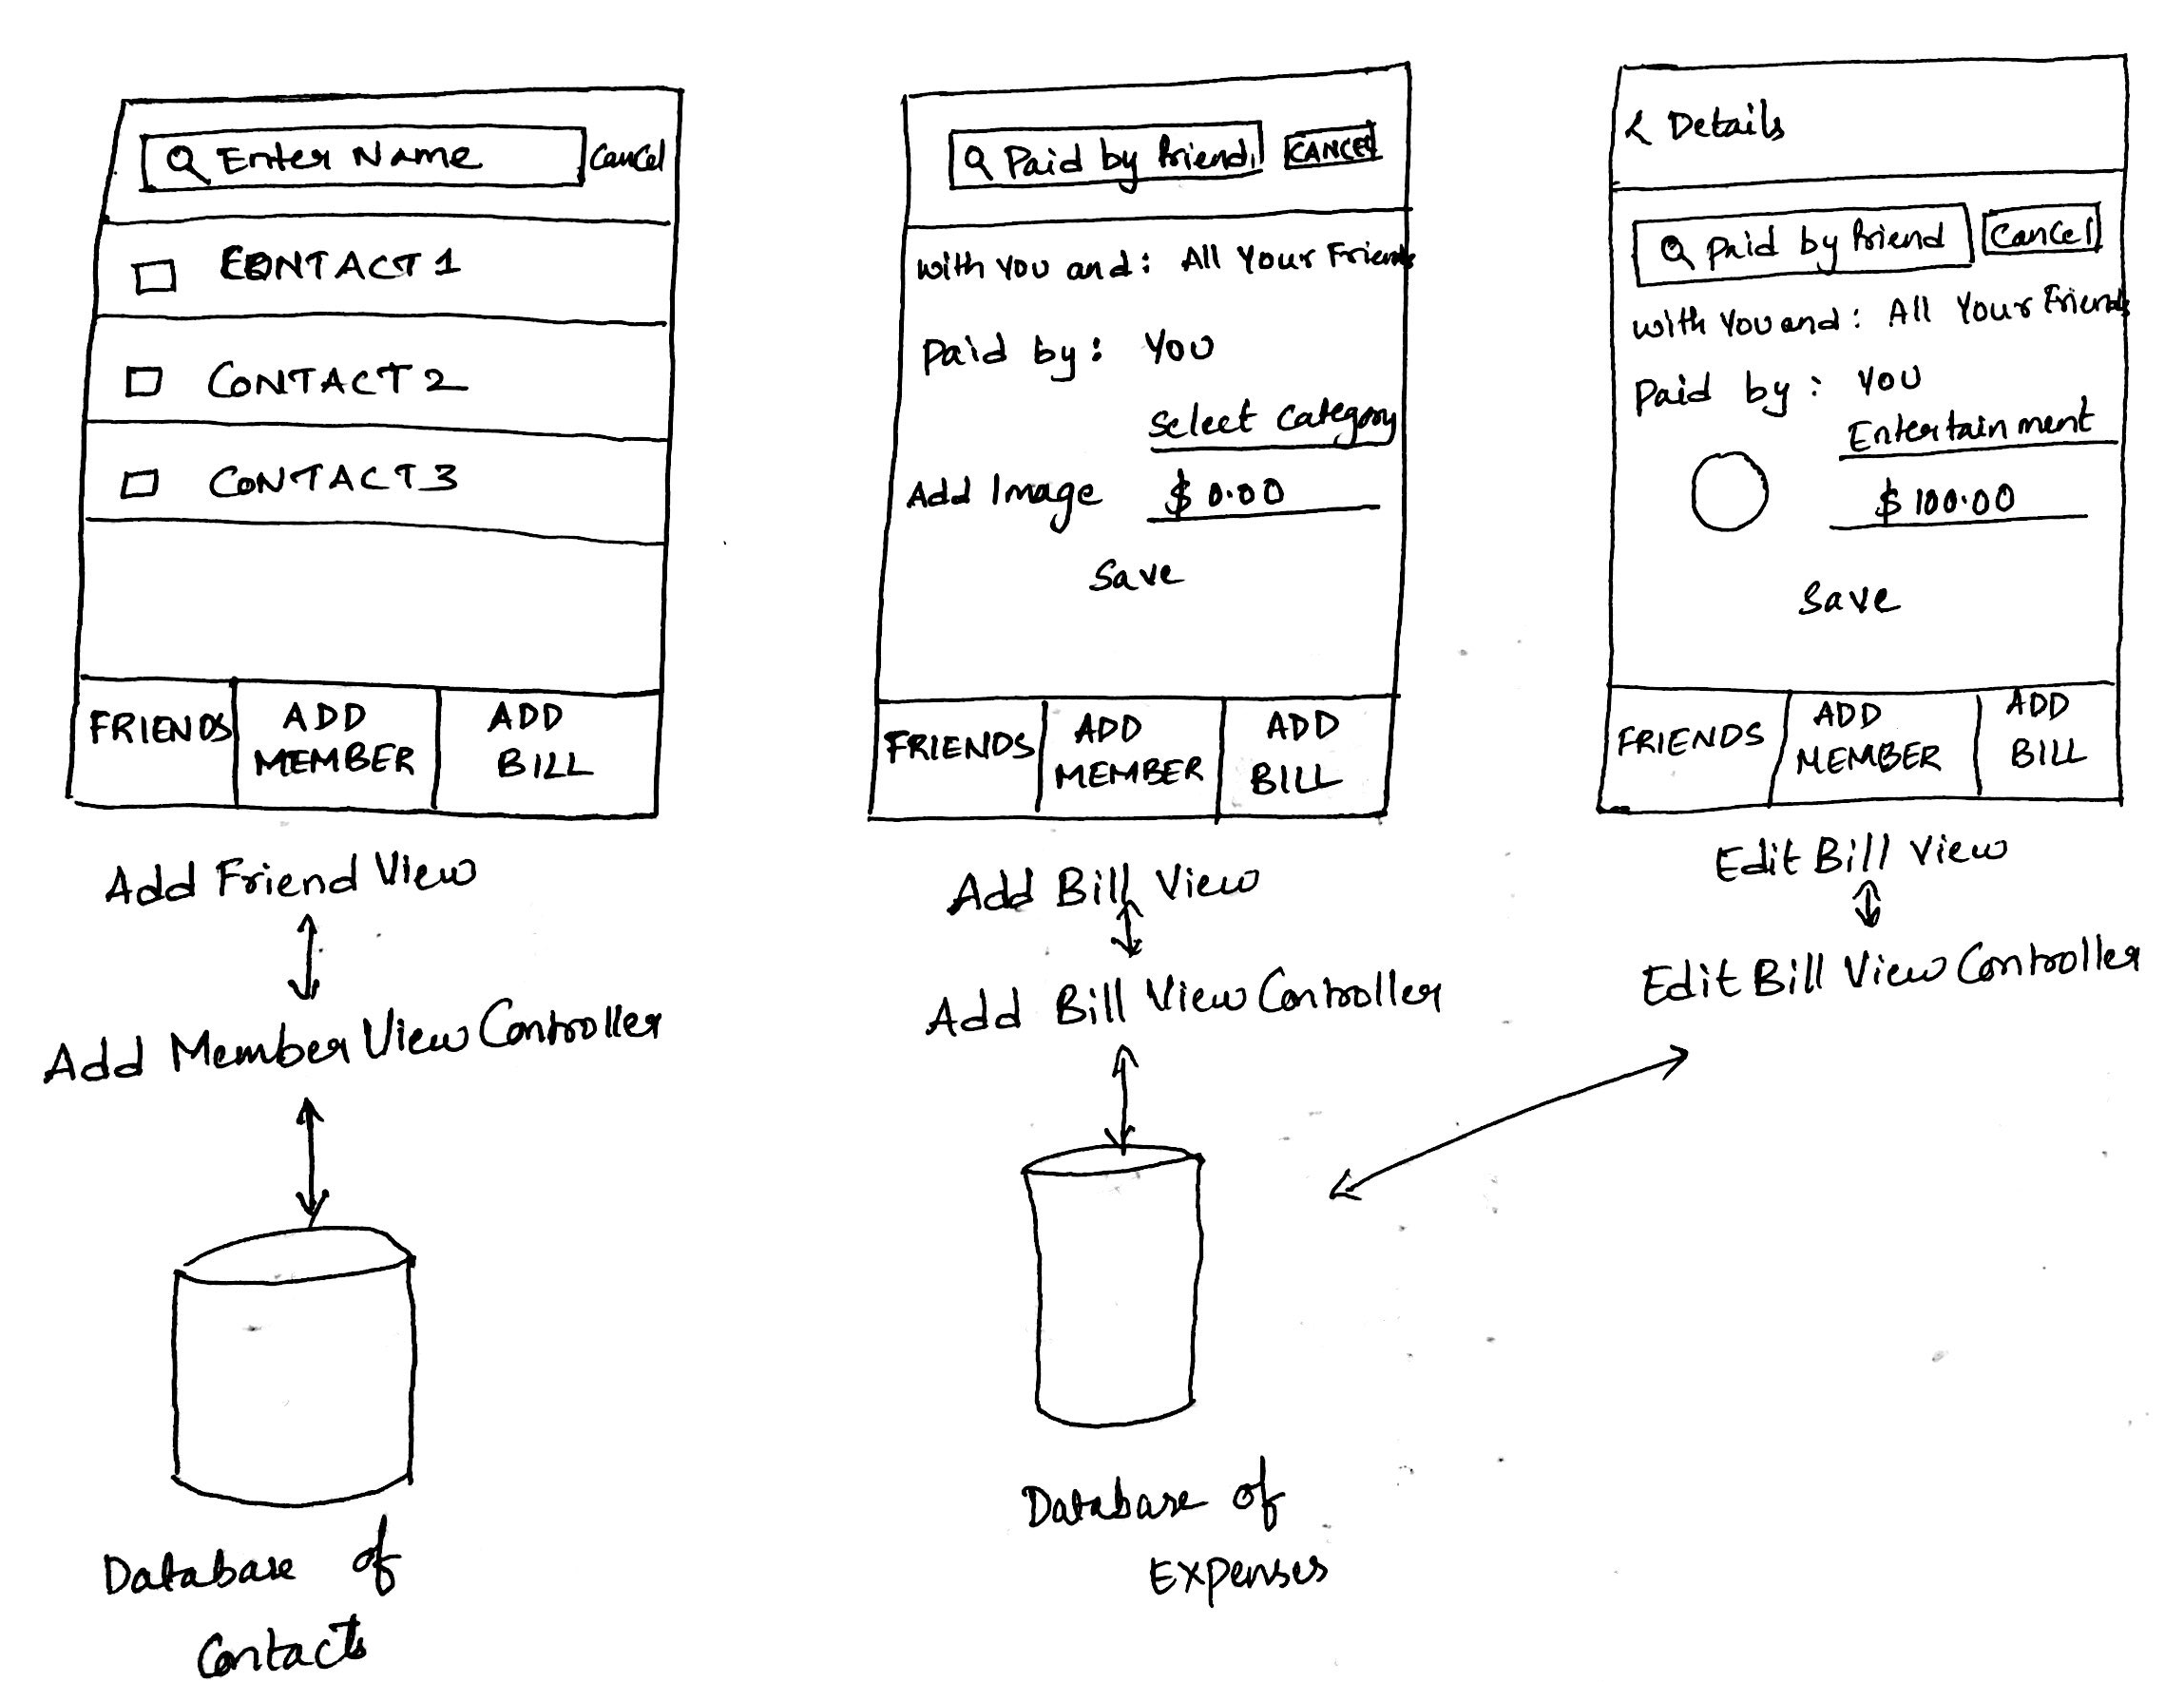 Enter Name Cancel
CONTACT 1
CONTACT 2
CONTACT 3
FRIENDS ADD MEMBER ADD BILL
Add Friend View
Add Member View Controller
Database of
Contacts
Paid by friend CANCEL
With You and: All Your Friends
Paid by: You
Select Category
Add Image $0.00
Save
FRIENDS ADD MEMBER ADD BILL
Add Bill View
Add Bill View Controller
Database of
Expenses
< Details
Paid by friend Cancel
With You and: All Your Friends
Paid by: You
Entertainment
$100.00
Save
FRIENDS ADD MEMBER ADD BILL
Edit Bill View
Edit Bill View Controller